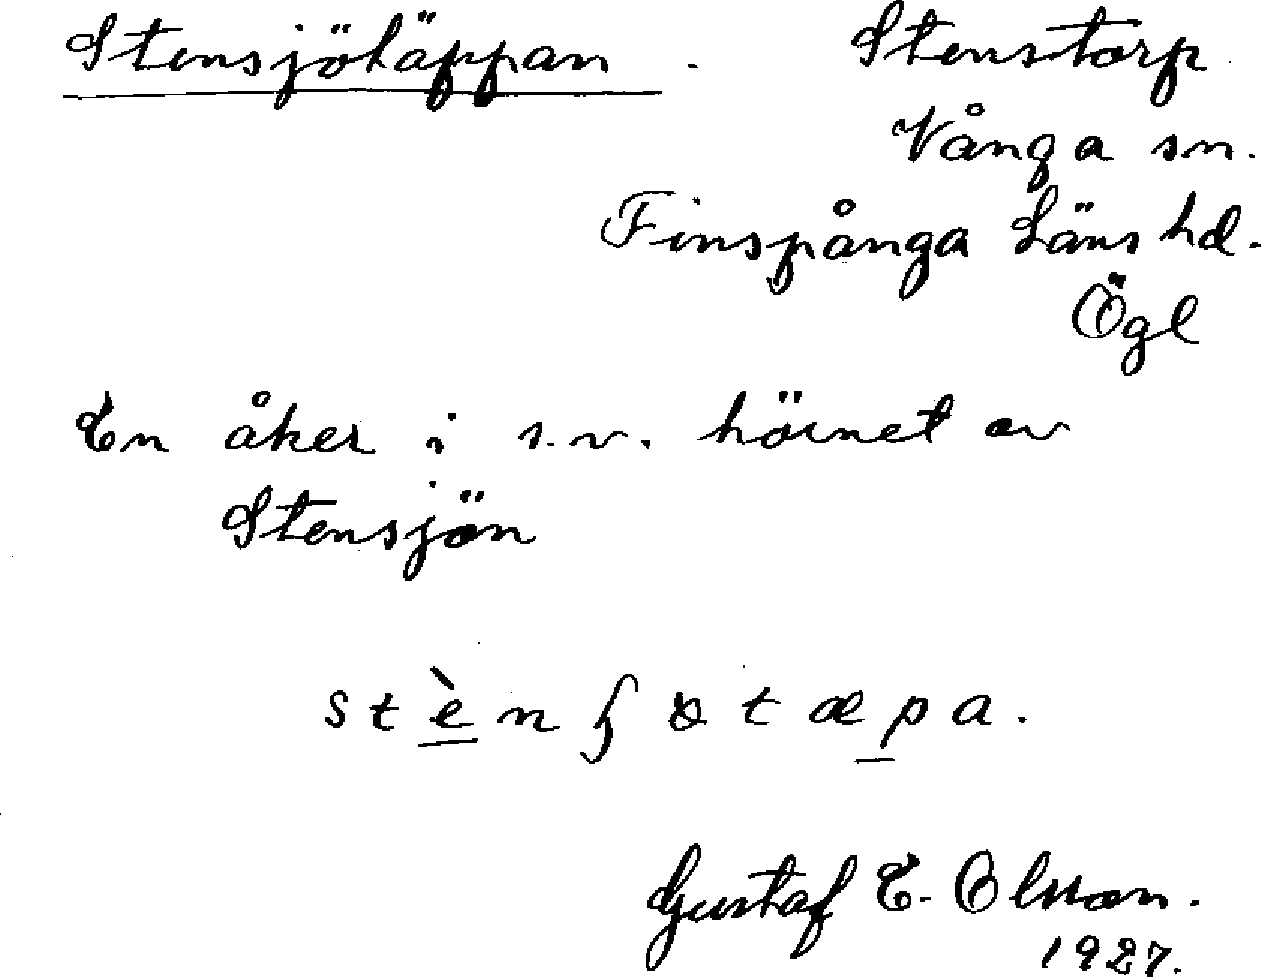 Stensjötäppan. Stenstorp
Vånga sn.
Finspånga Läns hd.
Ögl
En åker i s.v. hörnet av
Stensjön
stènʃøtæpa.
Gustaf E. Olsson.
1927.